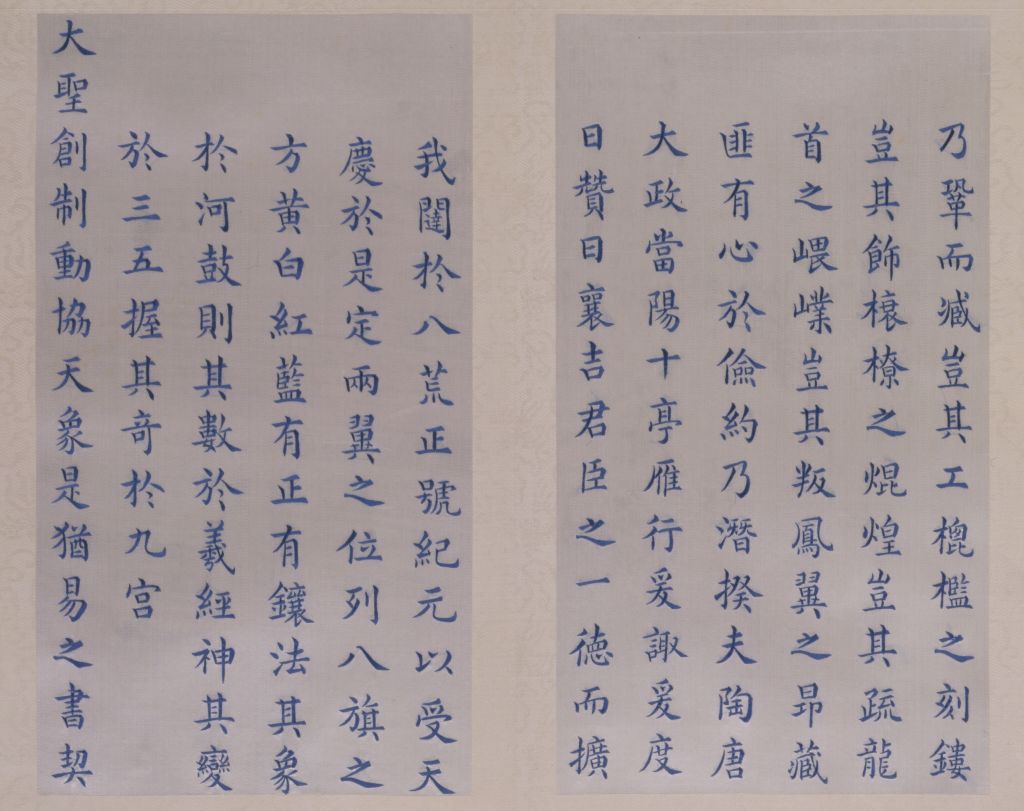 乃鞏而臧豈其工榥檻之刻鏤
豈其飾榱橑之焜煌豈其疏龍
首之㟪嶫豈其叛鳳翼之昂藏
匪有心於儉約乃潛揆夫陶唐
大政當陽十亭雁行爰諏爰度
日贊日襄吉君臣之一德而擴
我闥於八荒正號紀元以受天
慶於是定兩翼之位列八旗之
方黃白紅藍有正有鑲法其象
於河鼓則其數於羲經神其變
於三五握其奇於九宮
大聖創制動協天象是猶易之書契